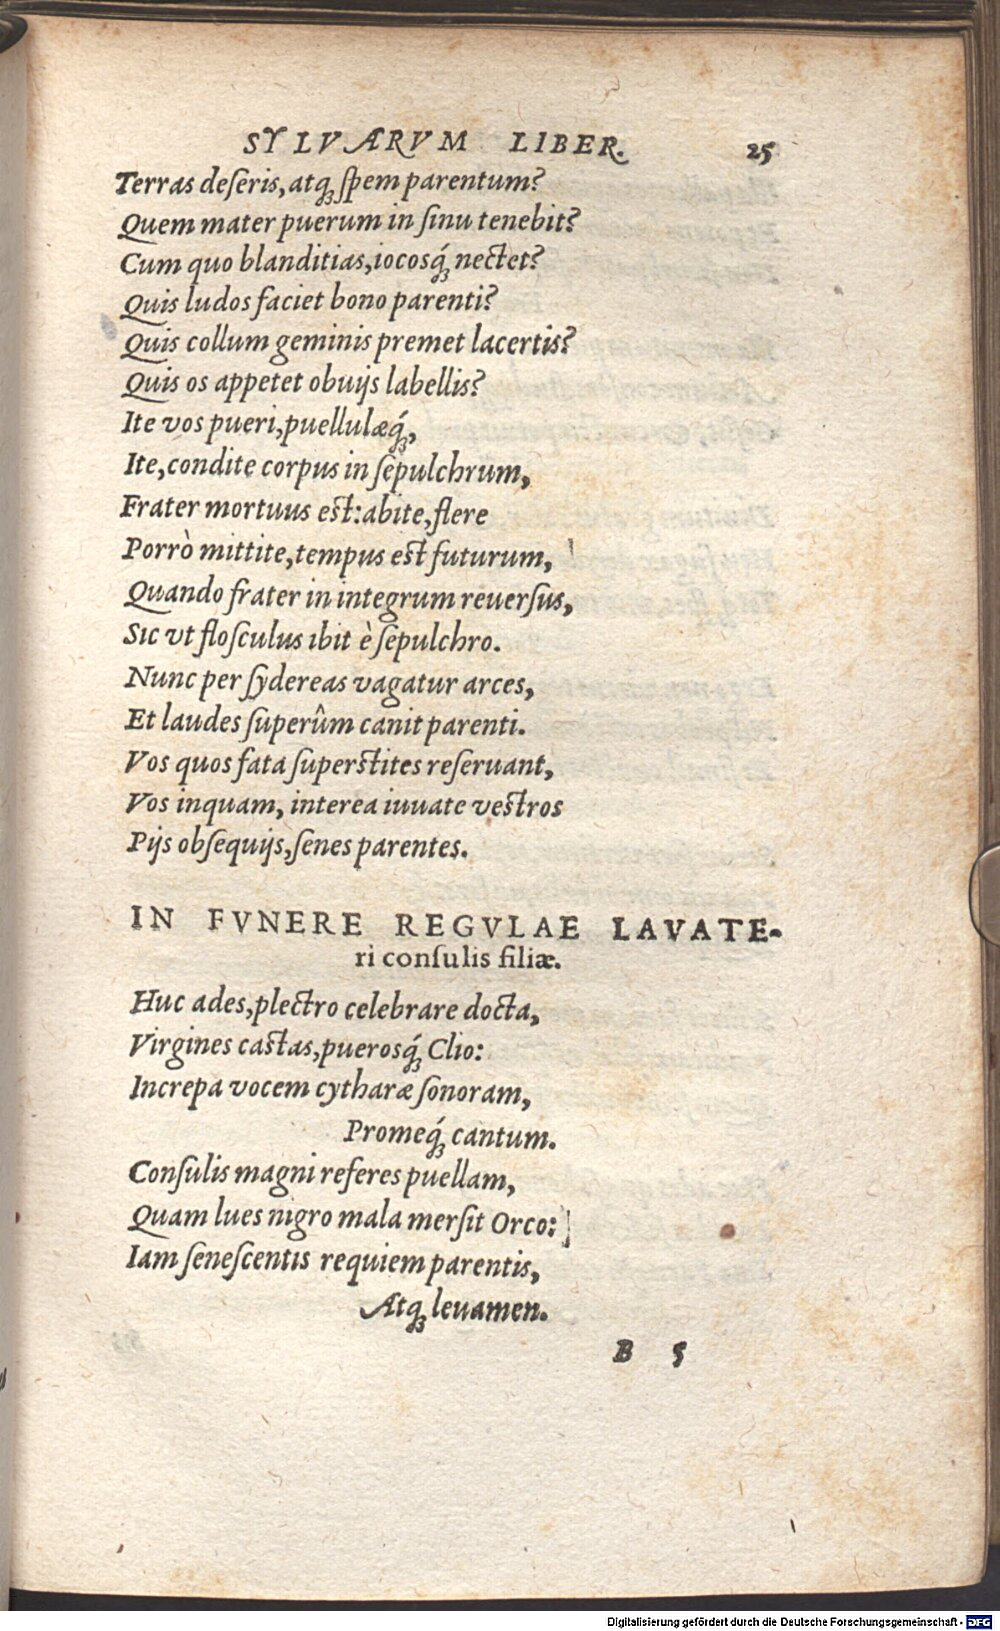 SYLVARVM LIBER. 25
Terras deſeris, atq; ſpem parentum?
Quem mater puerum in ſinu tenebit?
Cum quo blanditias, iocosq́; nectet?
Quis ludos faciet bono parenti?
Quis collum geminis premet lacertis?
Quis os appetet obuijs labellis?
Ite vos pueri, puellulæq́;,
Ite, condite corpus in ſepulchrum,
Frater mortuus est: abite, flere
Porrò mittite, tempus est futurum,
Quando frater in integrum reuerſus,
Sic vt floſculus ibit è ſepulchro.
Nunc per ſydereas vagatur arces,
Et laudes ſuperûm canit parenti.
Vos quos fata ſuperstites reſeruant,
Vos inquam, interea iuuate vestros
Pijs obſequijs, ſenes parentes.
IN FVNERE REGVLAE LAVATE-
ri conſulis filiæ.
Huc ades, plectro celebrare docta,
Virgines castas, puerosq́; Clio:
Increpa vocem cytharæ ſonoram,
Promeq́; cantum.
Conſulis magni referes puellam,
Quam lues nigro mala merſit Orco:
Iam ſeneſcentis requiem parentis,
Atq; leuamen.
B 5
Digitalisierung gefördert durch die Deutsche Forschungsgemeinschaft - DFG